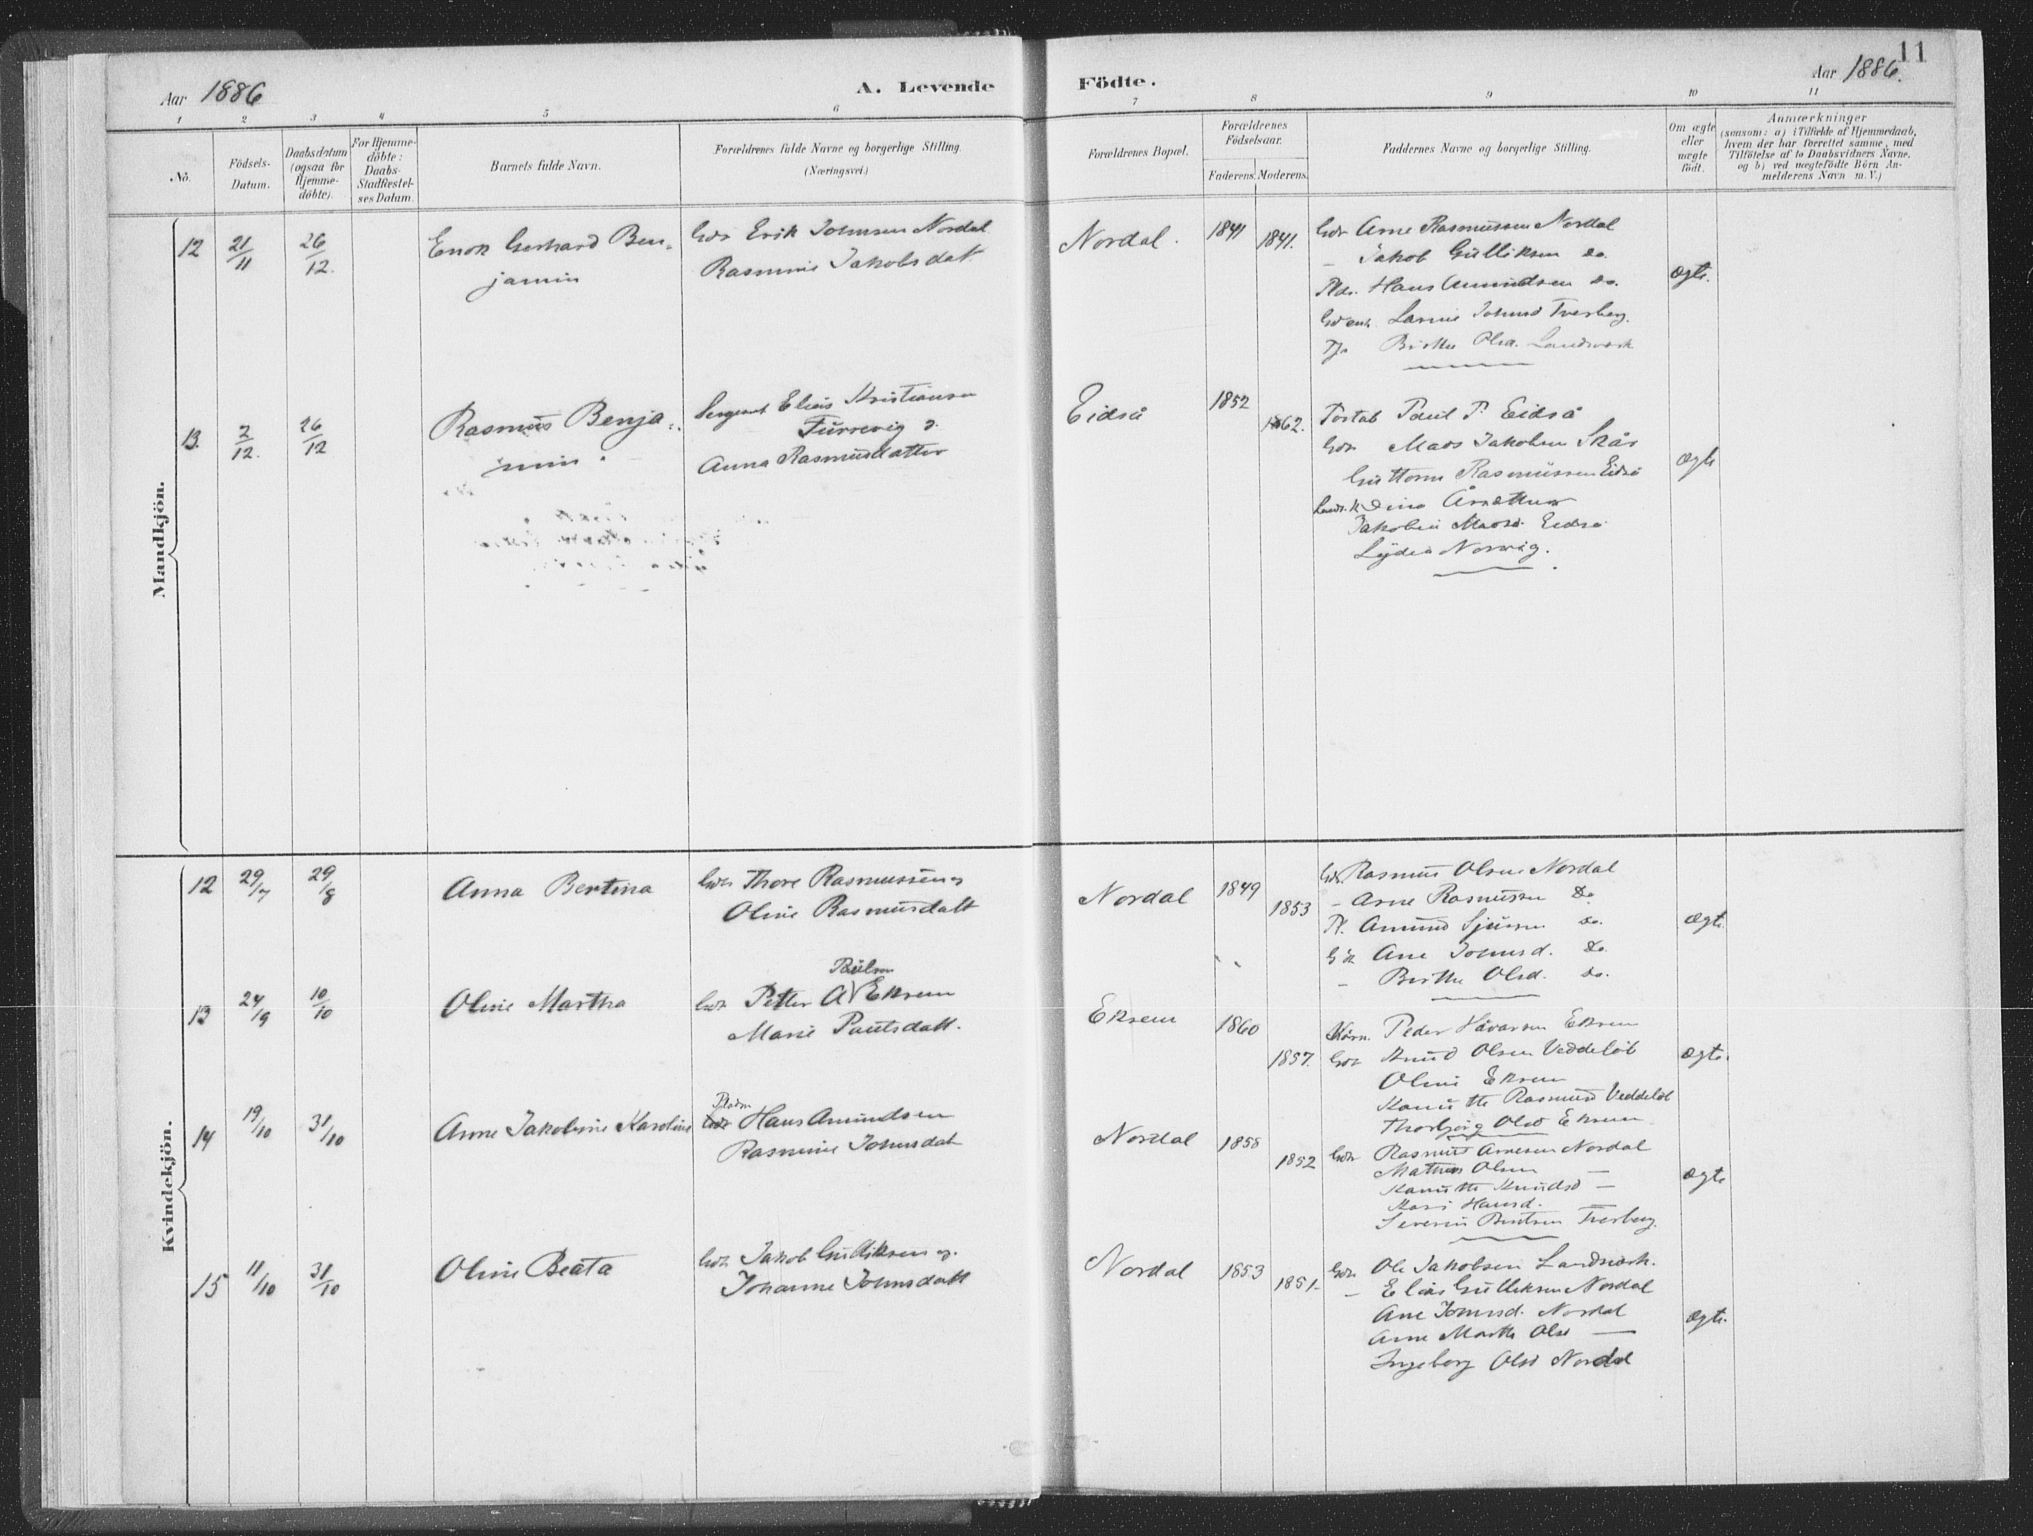 11
Aar 1886
A. Levende
Födte.
Aar 1886.
1 2 3 4 5 6 7 8 9 10 11
No.
Födsels-Datum.
Daabsdatum (ogsaa for Hjemme-döbte).
For Hjemme-döbte: Daabs-Stadfæstel-ses Datum.
Barnets fulde Navn.
Forældrenes fulde Navne og borgerlige Stilling. (Næringsvei.)
Forældrenes Bopæl.
Forældrenes Födselsaar.
Faderens. Moderens.
Faddernes Navne og borgerlige Stilling.
Om ægte eller uægte födt.
Anmærkninger
(saasom: a) i Tilfælde af Hjemmedaab,
hvem der har forrettet samme, med
Tilföielse af to Daabsvidners Navne,
og b) ved uægtefödte Börn An-
melderens Navn m. V.)
Mandkjön.
12 21/11 26/12. Enok Gerhard Ben-
jamin
Gdr Erik Johnsen Nordal
Rasmine Jakobsdat
Nordal. 1841 1841.
Gdr Arne Rasmussen Nordal
– Jakob Gulliksen do.
Pldr. Hans Amundsen do.
Larsine Johnsd Tverberg.
Birthe Olsd. Landværk
ægte.
13. 2/12. 26/12 Rasmus Benja-
min.
Sergeant Elias Kristiansen
Furrevig &
Anna Rasmusdatter
Eidså 1852 1862.
Paul P. Eidså
Gdr Mads Jakobsen Skår
Guttorm Rasmussen Eidså
Dina Årsæther
Jakobine Madsd. Eidså
Lydia Norvig.
ægte
Kvindekjön.
12 29/7 29/8 Anna Bertina
Gdr Thore Rasmussen &
Oline Rasmusdatt
Nordal 1849 1853
Gdr. Rasmus Olsen Nordal
– Arne Rasmussen do
Pl. Amund Sjursen do.
Ane Johnsd. do.
– Birthe Olsd. do.
ægte.
13 24/9 10/10 Oline Martha
Paulsen
Gdr Petter A Eksem
Marie Paulsdatt.
Eksem 1860 1857.
Peder Håvarsen Eksem
Gdr Knud Olsen Veddeløb
Oline Eksem
Kanutte Rasmusd Veddeløb
Thorbjørg Olsd Eksem
ægte.
14 19/10 31/10 Anne Jakobine Karoline
Pladsm
Gdr Hans Amundsen
Rasmine Johnsdat
Nordal 1858 1852
Gdr Rasmus Arnesen Nordal
Mathias Olsen –
Kanutte Knudsd –
Kari Hansd. –
Severin Bentsen Tverberg.
ægte
15 11/10 31/10 Oline Beata
Gdr Jakob Gulliksen &
Johanne Johnsdatt
Nordal 1853 1851.
Gdr. Ole Jakobsen Landværk.
– Elias Gulliksen Nordal
Ane Johnsd. Nordal
Anne Marthe Olsd –
Ingeborg Olsd Nordal
ægte.